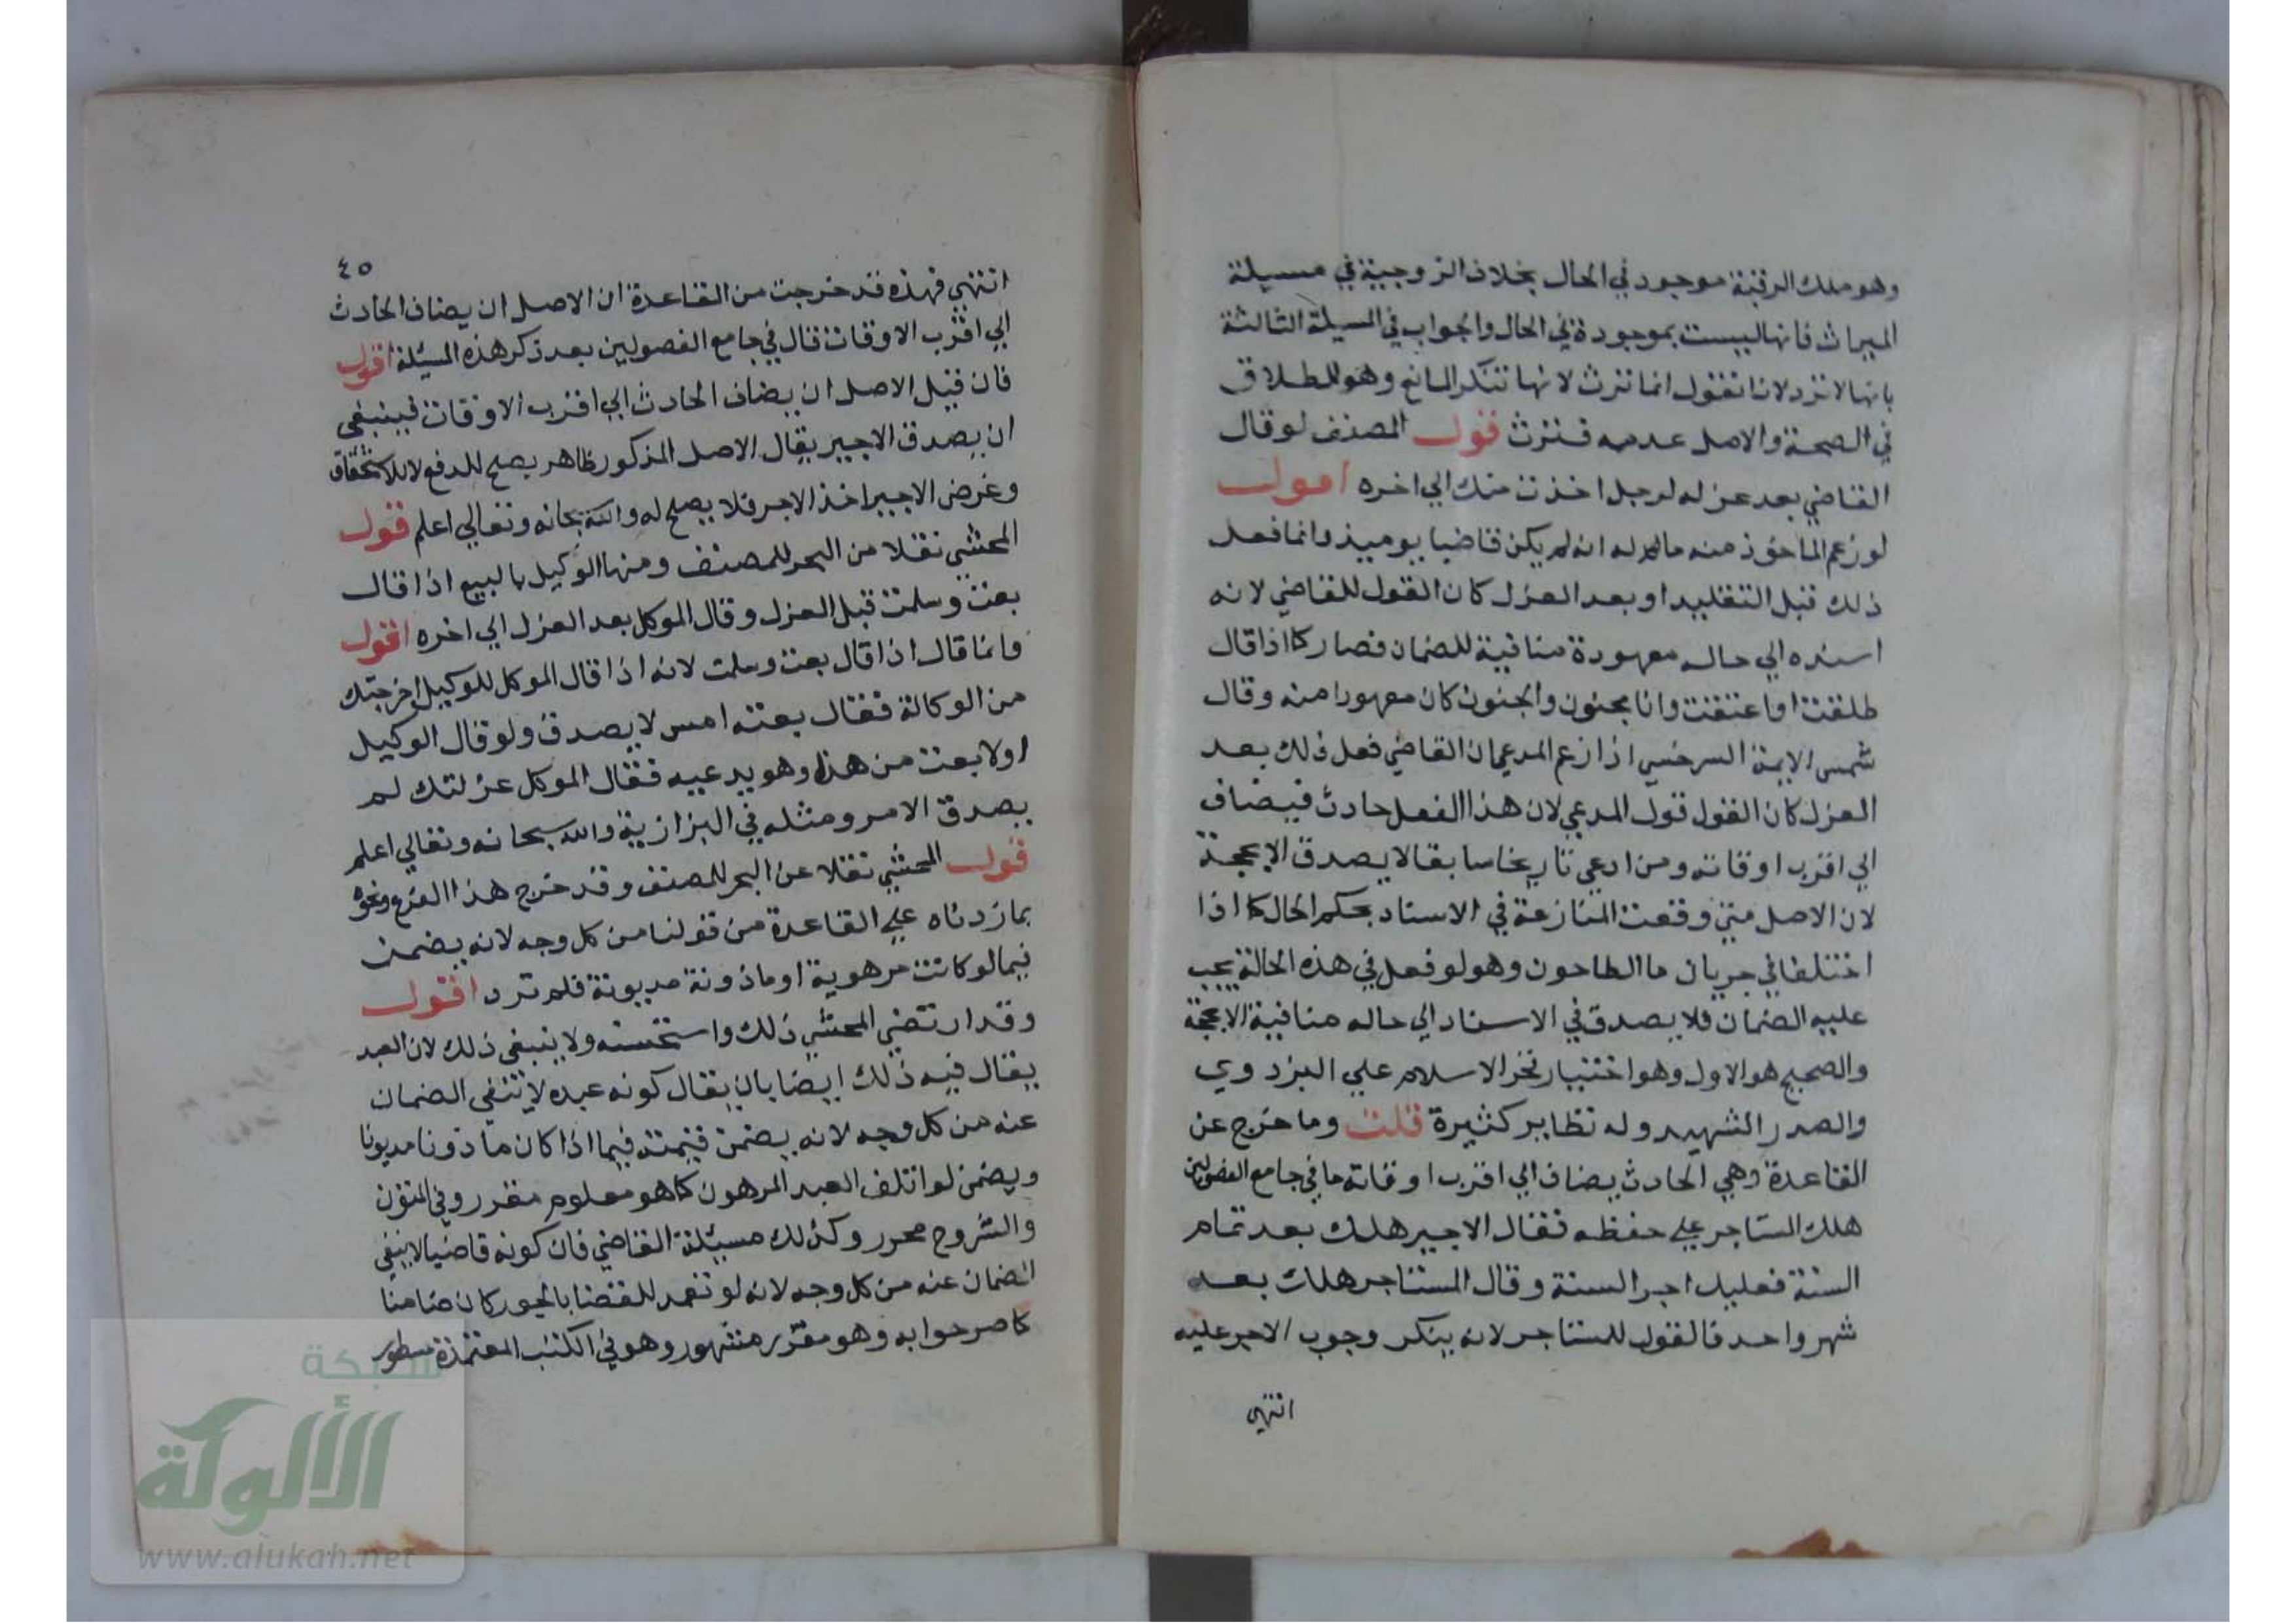 وهو ملك الرقبة موجود في الحال بخلاف الزوجية في مسيلة
الميراث فانها ليست بموجودة في الحال والجواب في المسيلة الثالثة
بانها لا ترد لانا نقول انما ترث لانها تنكر المانع وهو الطلاق
في الصحة والاصل عدمه فترث قول المصنف لو قال
القاضي بعد عزله لرجل اخذت منك الي اخره اقول
لو زعم الماخوذ منه ماله انه لم يكن قاضيا يوميذ وانما فعل
ذلك قبل التقليد او بعد العزل كان القول للقاضي لانه
اسنده الي حالة معهودة منافية للضمان فصار كما اذا قال
طلقت او اعتقت وانا مجنون والجنون كان معهودا منه وقال
شمس الايمة السرخسي اذا زعم المدعي ان القاضي فعل ذلك بعد
العزل كان القول قول المدعي لان هذا الفعل حادث فيضاف
الي اقرب اوقاته ومن ادعي تاريخا سابقا لا يصدق الا بحجة
لان الاصل متي وقعت المنازعة في الاسناد بحكم الحال كما اذا
اختلفا في جريان ما الطاحون وهو لو فعل في هذه الحالة يجب
عليه الضمان فلا يصدق في الاسناد الي حاله منافية الا بحجة
والصحيح هو الاول وهو اختيار فخر الاسلام علي البزدوي
والصدر الشهيد وله نظاير كثيرة قلت وما خرج عن
القاعدة وهي الحادث يضاف الي اقرب اوقاته ما في جامع الفصولين
هلك المستاجر علي حفظه فقال الاجير هلك بعد تمام
السنة فعليك اجر السنة وقال المستاجر هلك بعد
شهر واحد فالقول للمستاجر لانه ينكر وجوب الاجر عليه
انتهي
٤٥
انتهي فهذه قد خرجت من القاعدة ان الاصل ان يضاف الحادث
الي اقرب الاوقات قال في جامع الفصولين بعد ذكر هذه المسيلة اقول
فان قيل الاصل ان يضاف الحادث الي اقرب الاوقات فينبغي
ان يصدق الاجير يقال الاصل المذكور ظاهر يصلح للدفع لا للاستحقاق
وغرض الاجير اخذ الاجر فلا يصلح له والله سبحانه وتعالي اعلم قول
المحشي نقلا من البحر للمصنف ومنها الوكيل بالبيع اذا قال
بعت وسلمت قبل العزل وقال الموكل بعد العزل الي اخره اقول
وانما قال اذا قال بعت وسلمت لانه اذا قال الموكل للوكيل اخرجتك
من الوكالة فقال بعته امس لا يصدق ولو قال الوكيل
اولا بعت من هذا وهو يدعيه فقال الموكل عزلتك لم
يصدق الامر ومثله في البزازية والله سبحانه وتعالي اعلم
قول المحشي نقلا عن البحر للمصنف وقد خرج هذا الفرع ونحوه
بما زدناه علي القاعدة من قولنا من كل وجه لانه يضمن
فيما لو كانت مرهوية او ماذونة مديونة فلم ترد اقول
وقد ارتضي المحشي ذلك واستحسنه ولا ينبغي ذلك لان العبد
يقال فيه ذلك ايضا بان يقال كونه عبده لا تنفي الضمان
عنه من كل وجه لانه يضمن قيمته فيما اذا كان ماذونا مديونا
ويضمن لو اتلف العبد المرهون كما هو معلوم مقرر وفي المتون
والشروح محرر وكذلك مسيلة القاضي فان كونه قاضيا لا ينفي
الضمان عنه من كل وجه لانه لو تعمد للقضا بالجور كان ضامنا
كما صرحوا به وهو مقرر مشهور وهو في الكتب المعتمدة مسطور
شبكة
الألوكة
www.alukah.net